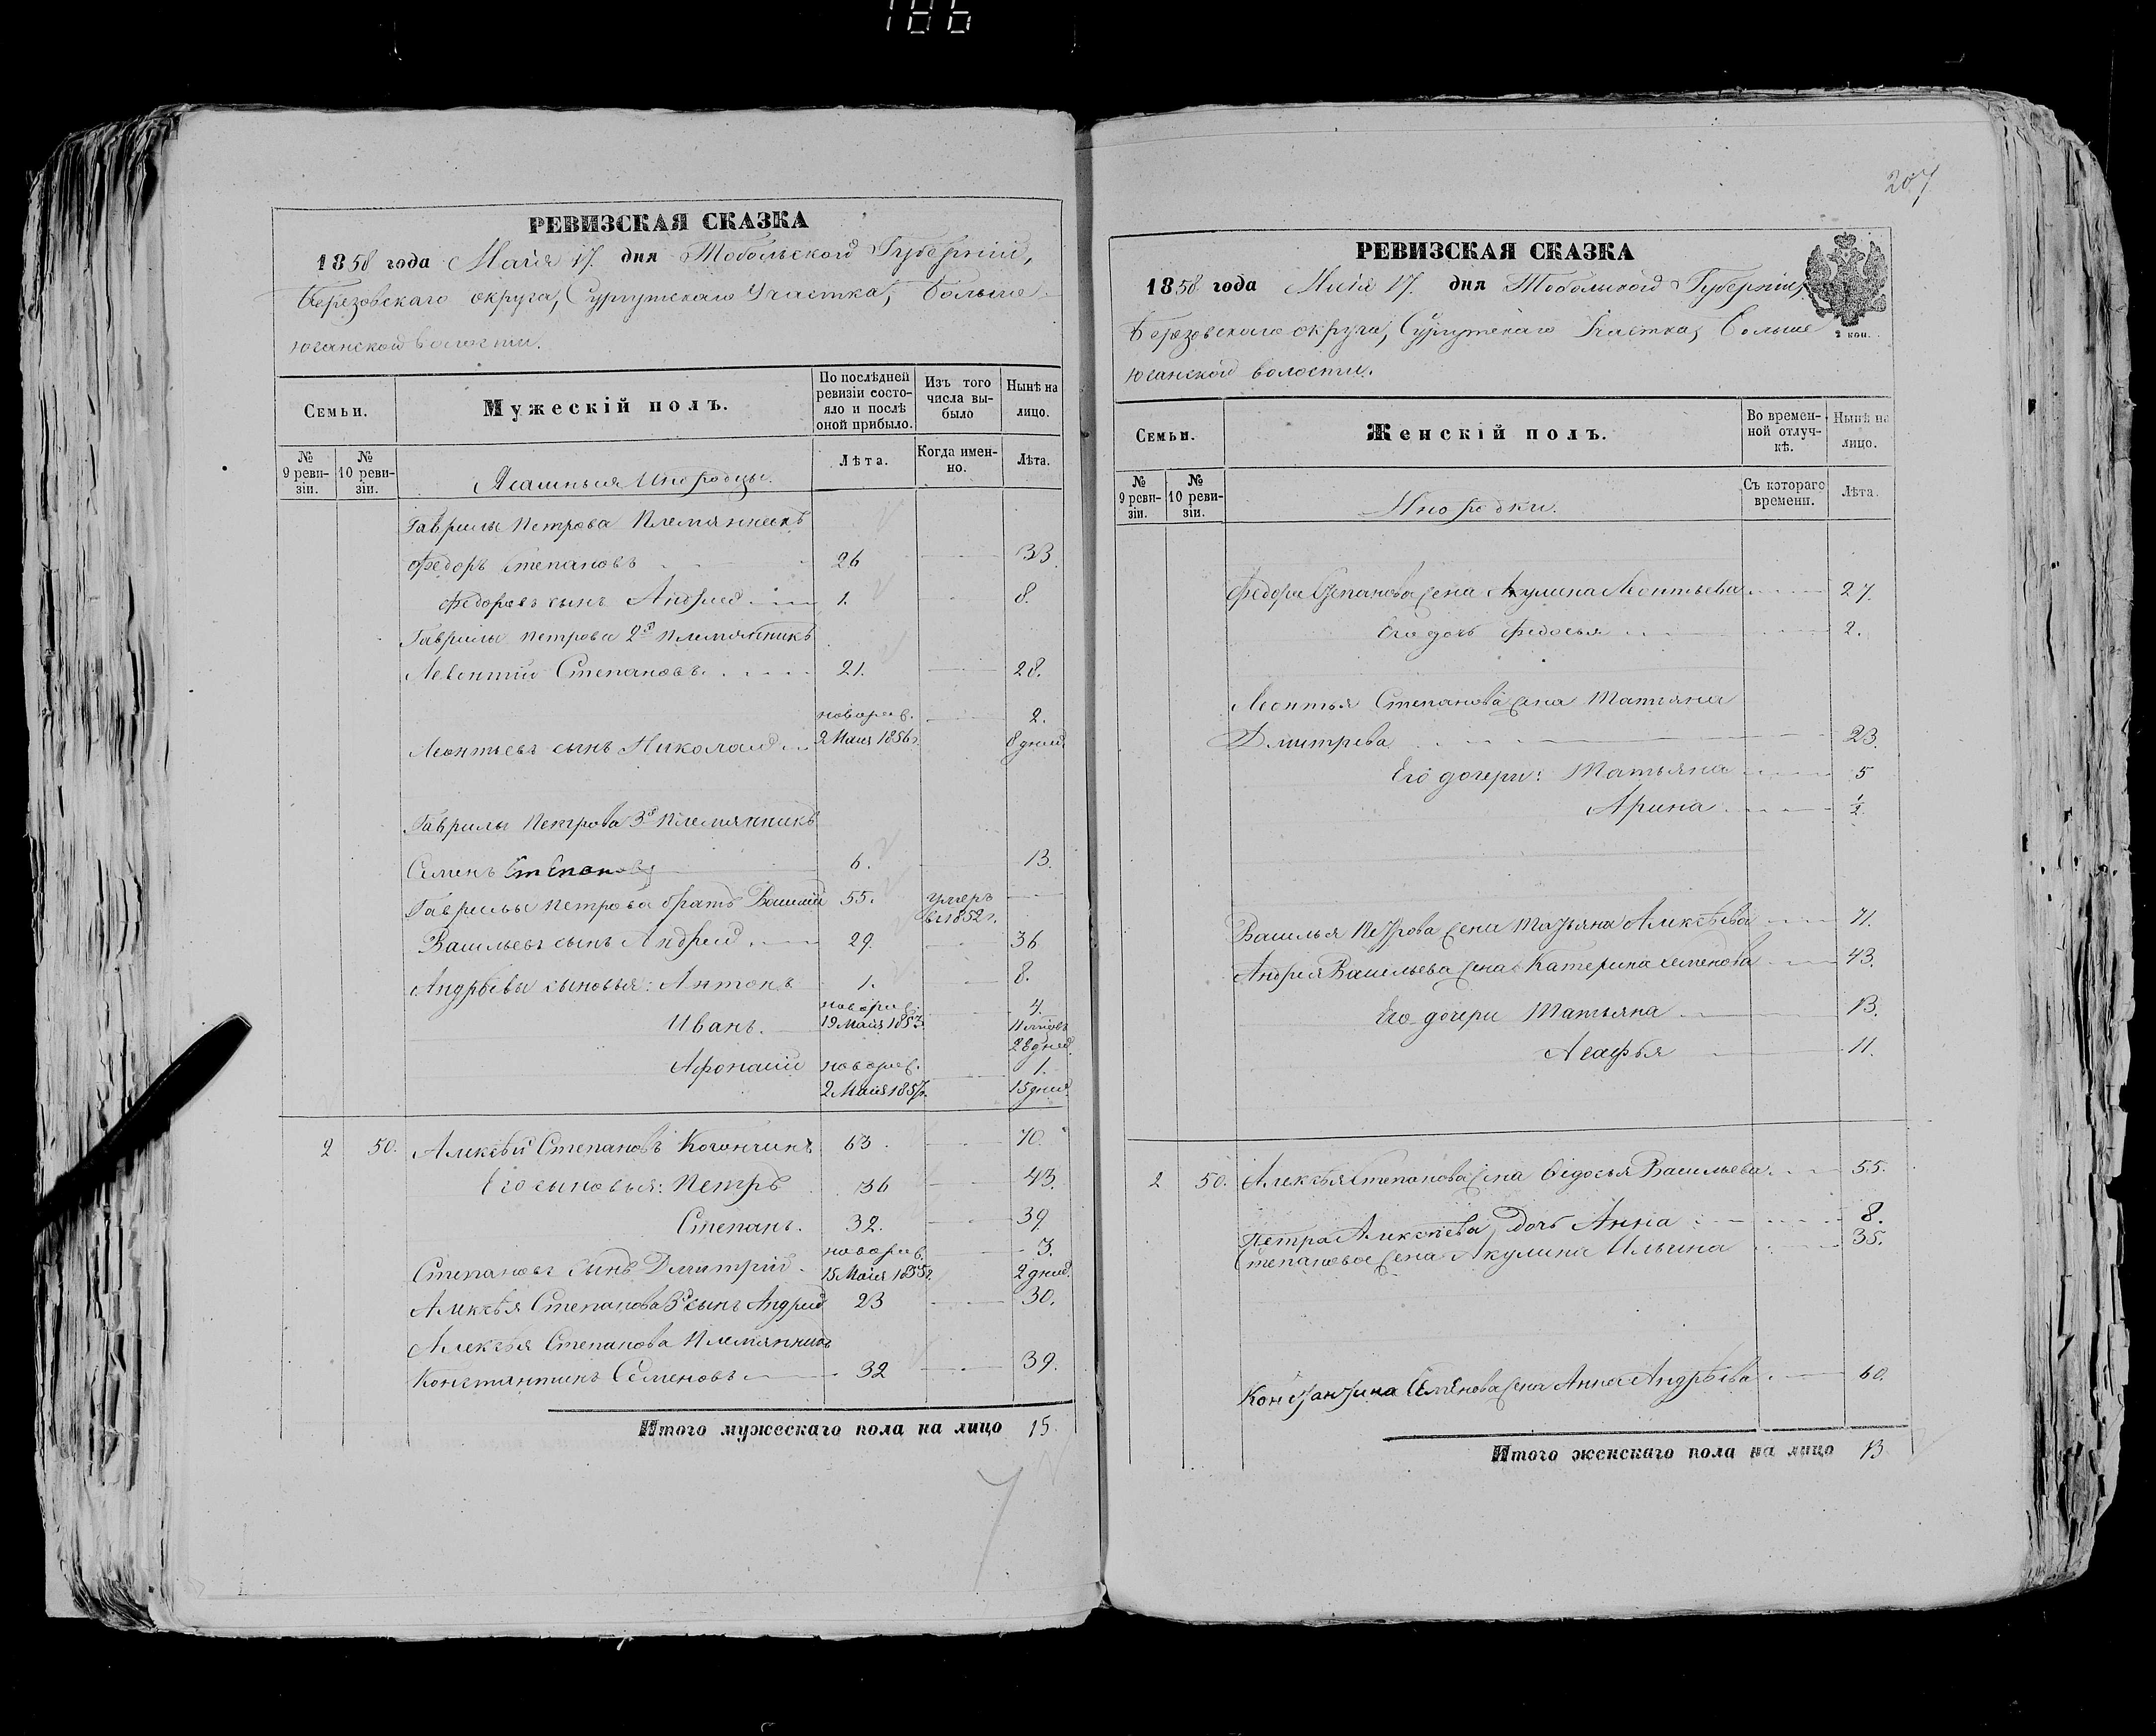 186
РЕВИЗСКАЯ СКАЗКА
1858 года Маія 17. дня Тобольской Губерніи,
Березовскаго округа, Сургутскаго Участка, Больше
юганской волости.
Семьи.
Мужескій полъ.
По послѣдней ревизіи состояло и послѣ оной прибыло.
Изъ того числа выбыло
Нынѣ на лицо.
№ 9 ревизіи.
№ 10 ревизіи.
Ясашныя Инородцы.
Лѣта.
Когда именно.
Лѣта.
Гаврилы Петрова Племянникъ
Федоръ Степановъ 26 33.
Федоровъ сынъ Андрей 1. 8.
Гаврилы Петрова 2й Племянникъ
Левонтій Степановъ 21. 28.
новорож. 2.
Леонтьевъ сынъ Николай 2 Маия 1856 г. 8 дней.
Гаврилы Петрова 3й Племянникъ
Семенъ Степановъ 6. 13.
Гаврилы Петрова братъ Василій 55. умеръ
въ 1852 г.
Васильевъ сынъ Андрей 29. 36
Андрѣевы сыновья: Антонъ 1. 8.
новорож. 4.
Иванъ. 19 Маия 1853 11 мѣсъ
28 дней.
Афонасій новорож. 1.
2 Маия 1857 г. 15 дней.
2 50. Алексѣй Степановъ Когончинъ 63. 70.
Его сыновья: Петръ 36 43.
Степанъ. 32. 39
новорож. 3.
Степановъ сынъ Дмитрій 15 Маия 1855 г. 2 дней.
Алексѣя Степанова 3й сынъ Андрей 23 30.
Алексѣя Степанова Племянникъ
Константинъ Семеновъ 32 39.
Итого мужескаго пола на лицо 15.
7
207
РЕВИЗСКАЯ СКАЗКА
1858 года Маія 17. дня Тобольской Губерніи,
Березовскаго округа, Сургутскаго Участка, Больше
2 коп.
юганской волости.
Семьи.
Женскій полъ.
Во временной отлучкѣ.
Нынѣ на лицо.
№ 9 ревизіи.
№ 10 ревизіи.
Инородки.
Съ котораго времени.
Лѣта.
Федора Степанова жена Акулина Леонтьева 27.
Его дочь Федосья 2.
Леонтья Степанова жена Татьяна
Дмитрева 23.
Его дочери: Татьяна 5
Арина ½.
Василья Петрова жена Татьяна Алексѣева 71.
Андрея Васильева жена Катерина Семенова 43.
Его дочери Татьяна 13.
Агафья 11.
2 50. Алексѣя Степанова жена Федосья Васильева 55.
Петра Алексѣева дочь Анна 8.
Степановое жена Акулина Ильина 35.
Константина Семенова жена Анна Андрѣева 60.
Итого женскаго пола на лицо 13